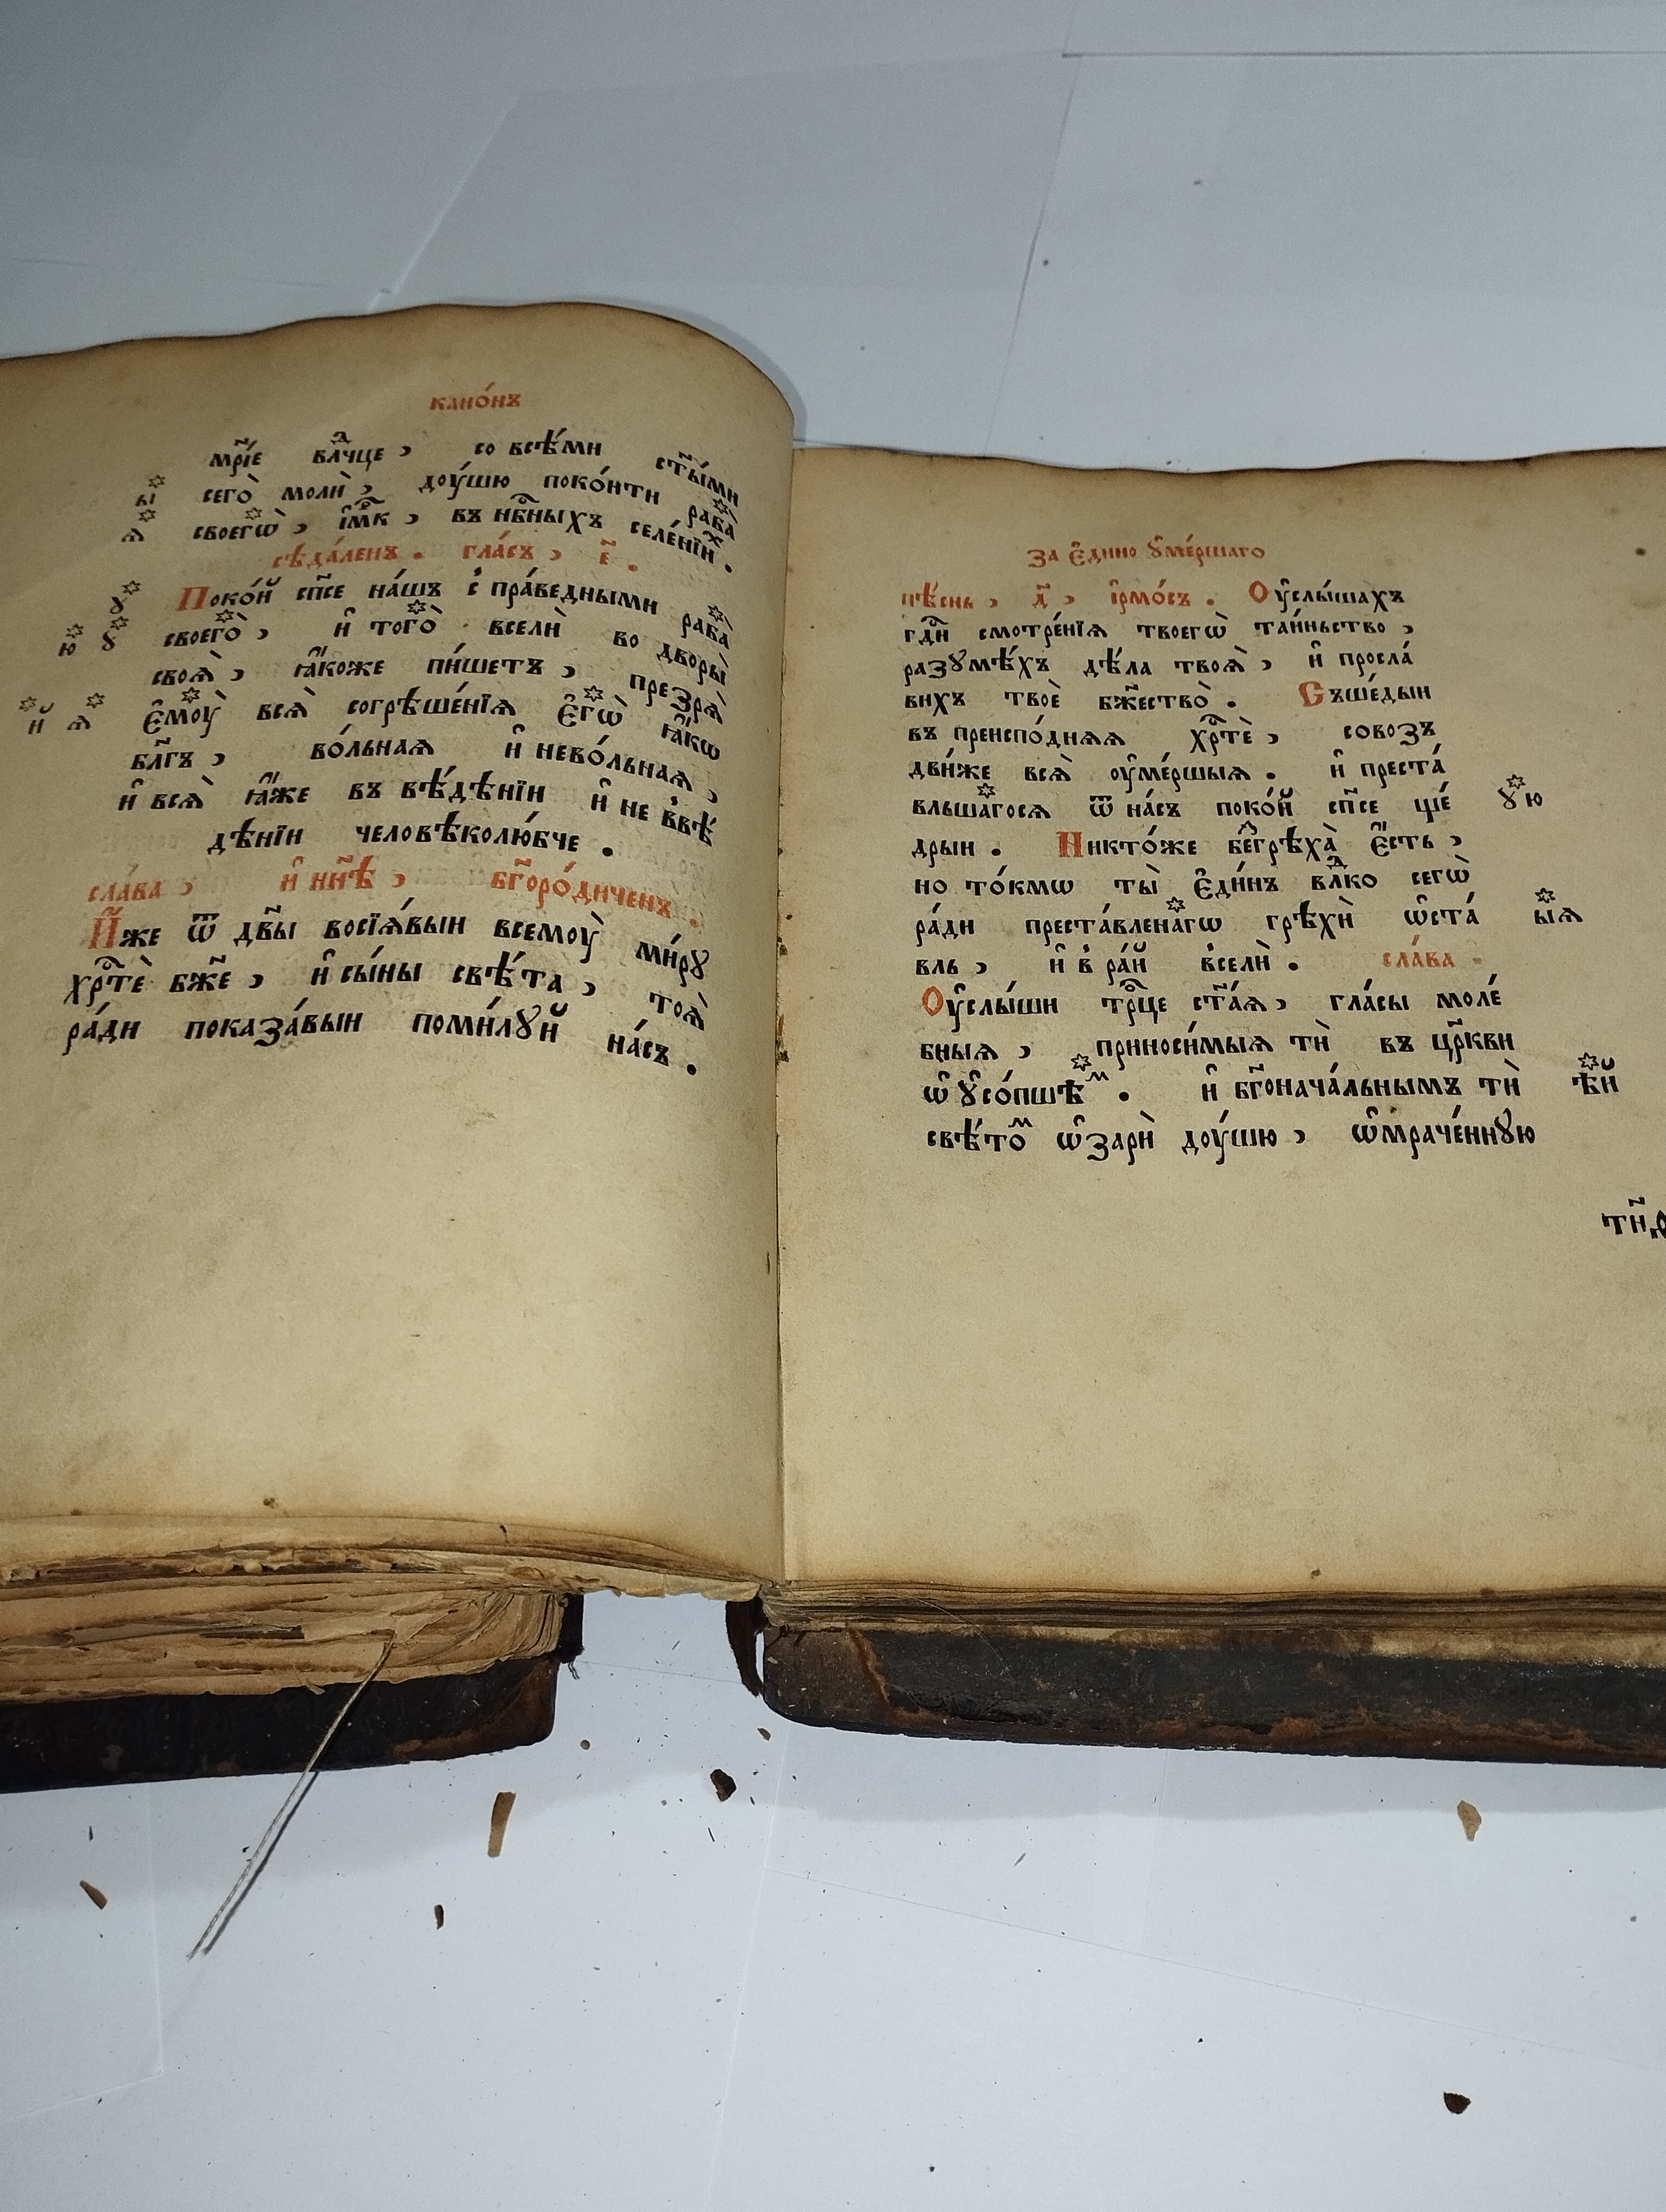 кано́нъ
мр҃і́е влⷣчце , со всѣ́ми ст҃ы́ми
ы сего̀ моли̑ , доу́шю поко́ити раба̀
ѧ своегѡ̀ , і҆мⷬ҇къ , въ нбⷭ҇ныхъ селе́нїиⷯ .
сѣда́ленъ . гла́съ , є҃ .
ꙋ Поко́й сп҃се на́шъ с̾ пра́ведными раба̀
ю ꙋ своего̀ , и҆ того̀ всели̑ во дворы̀
своѧ̀ , ꙗ҆́коже пи́шетъ , презрѧ̀
й ѧ є҆моу̀ всѧ̀ согрѣше́нїѧ є҆гѡ̀ ꙗ҆́кѡ
бл҃гъ , во́льнаѧ и҆ нево́льнаѧ ,
и҆ всѧ̀ ꙗ҆́же въ вѣ́дѣнїи и҆ не в̾вѣ́
дѣнїи человѣколю́бче .
сла́ва , и҆ нн҃ѣ , бг҃оро́диченъ .
И҆́же ѿ дв҃ы восїѧ́выи всемоу̀ ми́рꙋ
хрⷭ҇тѐ бж҃е , и҆ сы́ны свѣ́та , тоѧ̀
ра́ди показа́выи поми́лꙋй на́съ .
за є҆ди́но ꙋ҆ме́ршаго
пѣ́снь , д҃ , і҆рмо́съ . Оу҆слы́шахъ
гдⷭ҇и смотре́нїѧ твоегѡ̀ та́иньство ,
разꙋмѣ́хъ дѣ́ла твоѧ̀ , и҆ просла́
вихъ твоѐ бж҃ество̀ . Съше́дыи
въ преиспо́днѧѧ хрⷭ҇тѐ , совозъ
дви́же всѧ̀ оу҆ме́ршыѧ . и҆ преста́
вльша́госѧ ѿ на́съ поко́й сп҃се ще́ ꙋю
дрыи . Никто́же безⸯгрѣха̀ є҆́сть ,
но то́кмѡ ты̀ є҆ди́нъ влⷣко сегѡ̀
ра́ди преста́вленагѡ грѣхи̑ ѡ҆ста́ ыѧ
вль , и҆ в̾ ра́й в̾сели̑ . сла́ва .
Оу҆слы́ши трⷪ҇це ст҃а́ѧ , гла́сы моле́
бныѧ , приноси́мыѧ ти̑ въ цр҃кви
ѡ҆ ꙋ҆со́пшѣⷨ . и҆ бг҃онача́льнымъ ти̑ ѣй
свѣ́тоⷨ ѡ҆зари̑ доу́шю , ѡ҆мраче́ннꙋю